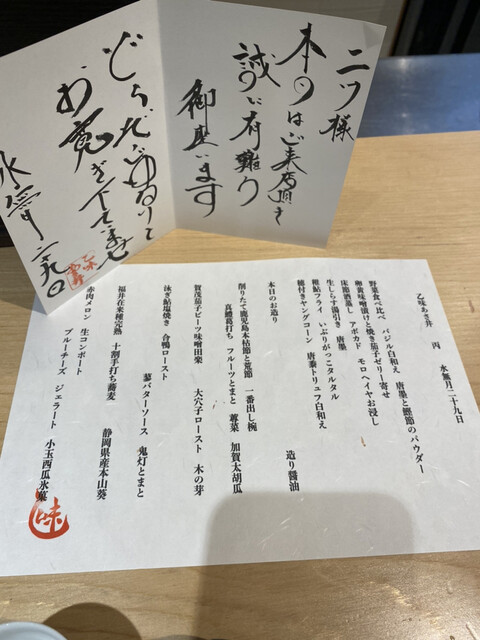 二ツ様
本日はご来店頂き
誠に有難う
御座います
どうぞごゆるりと
お寛ぎ下さいませ
水無月二十九日
乙味あさ井　丙　水無月二十九日
野菜食べ比べ　バジル白和え　唐墨と鰹節のパウダー
卵黄味噌漬けと焼き茄子ゼリー寄せ
床節酒蒸し　アボカド　モロヘイヤお浸し
生しらす湯引き　唐墨
稚鮎フライ　いぶりがっこタルタル
穂付きヤングコーン　唐黍トリュフ白和え
本日のお造り　造り醤油
削りたて鹿児島本枯節と荒節　一番出し椀
真鱧葛打ち　フルーツとまと　蓴菜　加賀太胡瓜
賀茂茄子ビーツ味噌田楽　大穴子ロースト　木の芽
泳ぎ鮎塩焼き　合鴨ロースト
蓼バターソース　鬼灯とまと
福井在来種完熟　十割手打ち蕎麦　静岡県産本山葵
赤肉メロン　生コンポート
ブルーチーズ　ジェラート　小玉西瓜氷菓
味